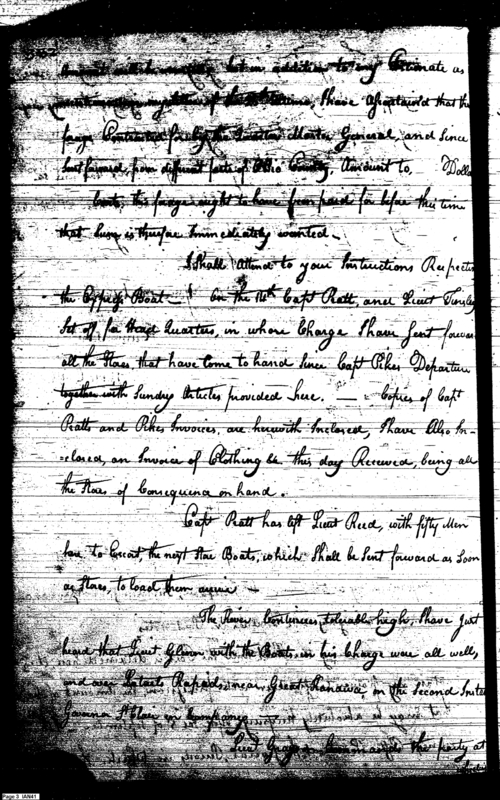 Amount will be in addition to my Estimate as
of the, I have Ascertained that the
forage Contracted for by the Quarter Master General, and Since
furnished, from different parts of Ohio County, Amount to, Dolla
Cents, this forage ought to have been paid for before this time
that Sum is therefore Immediately wanted.
I Shall Attend to your Instructions Respecting
the Express Boat — On the 14th Capt Pratt, and Lieut
Set off, for Head Quarters, in whose Charge I have Sent forward
all the Stores that have Come to hand Since Capt Pikes Departure
together with Sundry Articles provided here. — Copies of Capt
Pratts and Pikes Invoices, are herewith Inclosed, I have Also In-
=closed, an Invoice of Clothing &c this day Received, being all
the Stores of Consequence on hand.
Capt Pratt has left Lieut Reed, with fifty Men
here to Escort, the next Store Boats, which Shall be Sent forward as Soon
as Stores, to load them arrive —
The River Continues, tolerable high, I have Just
heard that Lieut with the Boats, in his Charge were all well,
and over Rapids, near Great Kanawa on the Second Inst
Governor St Clair in Company.
Lieut the party at